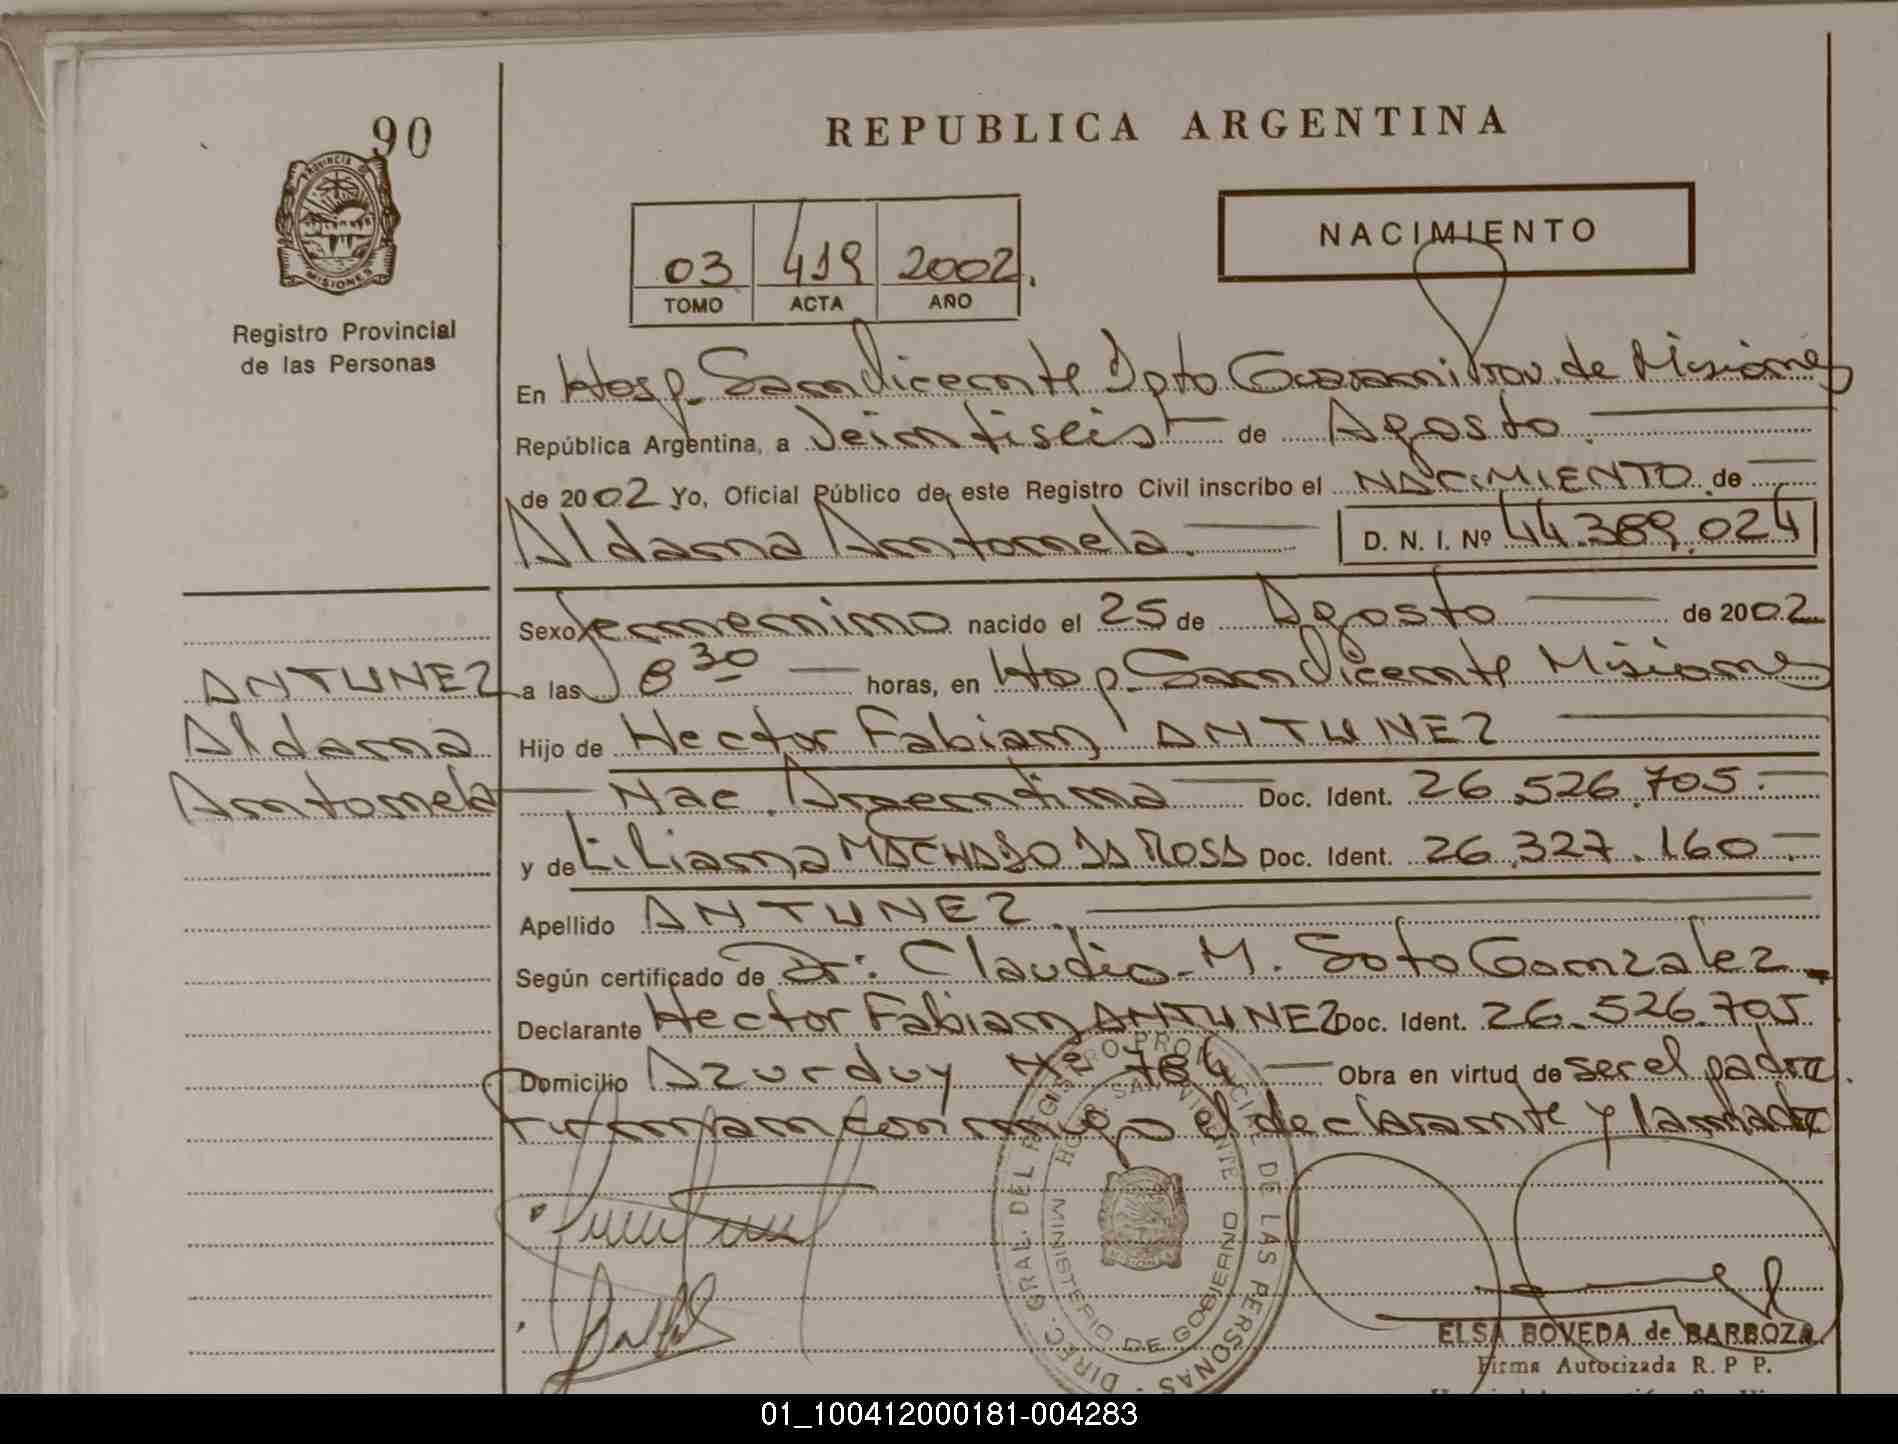 90
PROVINCIA DE
MISIONES
Registro Provincial
de las Personas
REPUBLICA ARGENTINA
03 419 2002.
TOMO ACTA AÑO
NACIMIENTO
En Hosp. San Vicente Dpto Guarani Prov. de Misiones
República Argentina, a Veintiseis de Agosto.
de 2002 Yo, Oficial Público de este Registro Civil inscribo el NACIMIENTO de
Aldana Antonela. D. N. I. Nº 44.389.024
Sexo femenino nacido el 25 de Agosto de 2002
a las 8 30 horas, en Hosp. San Vicente Misiones
Hijo de Hector Fabian ANTUNEZ
Nac. Argentina Doc. Ident. 26.526.705.
y de Liliana MACHADO DA ROSA Doc. Ident. 26.327.160.
Apellido ANTUNEZ.
Según certificado de Dr: Claudio M. Soto Gonzalez.
Declarante Hector Fabian ANTUNEZ Doc. Ident. 26.526.705
Domicilio Azurduy Nº 784 Obra en virtud de ser el padre.
Firman conmigo el declarante y la madre
ANTUNEZ
Aldana
Antonela
DIREC. GRAL. DEL REGISTRO PROVINCIAL DE LAS PERSONAS
HOSP. SAN VICENTE
MINISTERIO DE GOBIERNO
ELSA BOVEDA de BARBOZA
Firma Autorizada R. P P.
01_100412000181-004283